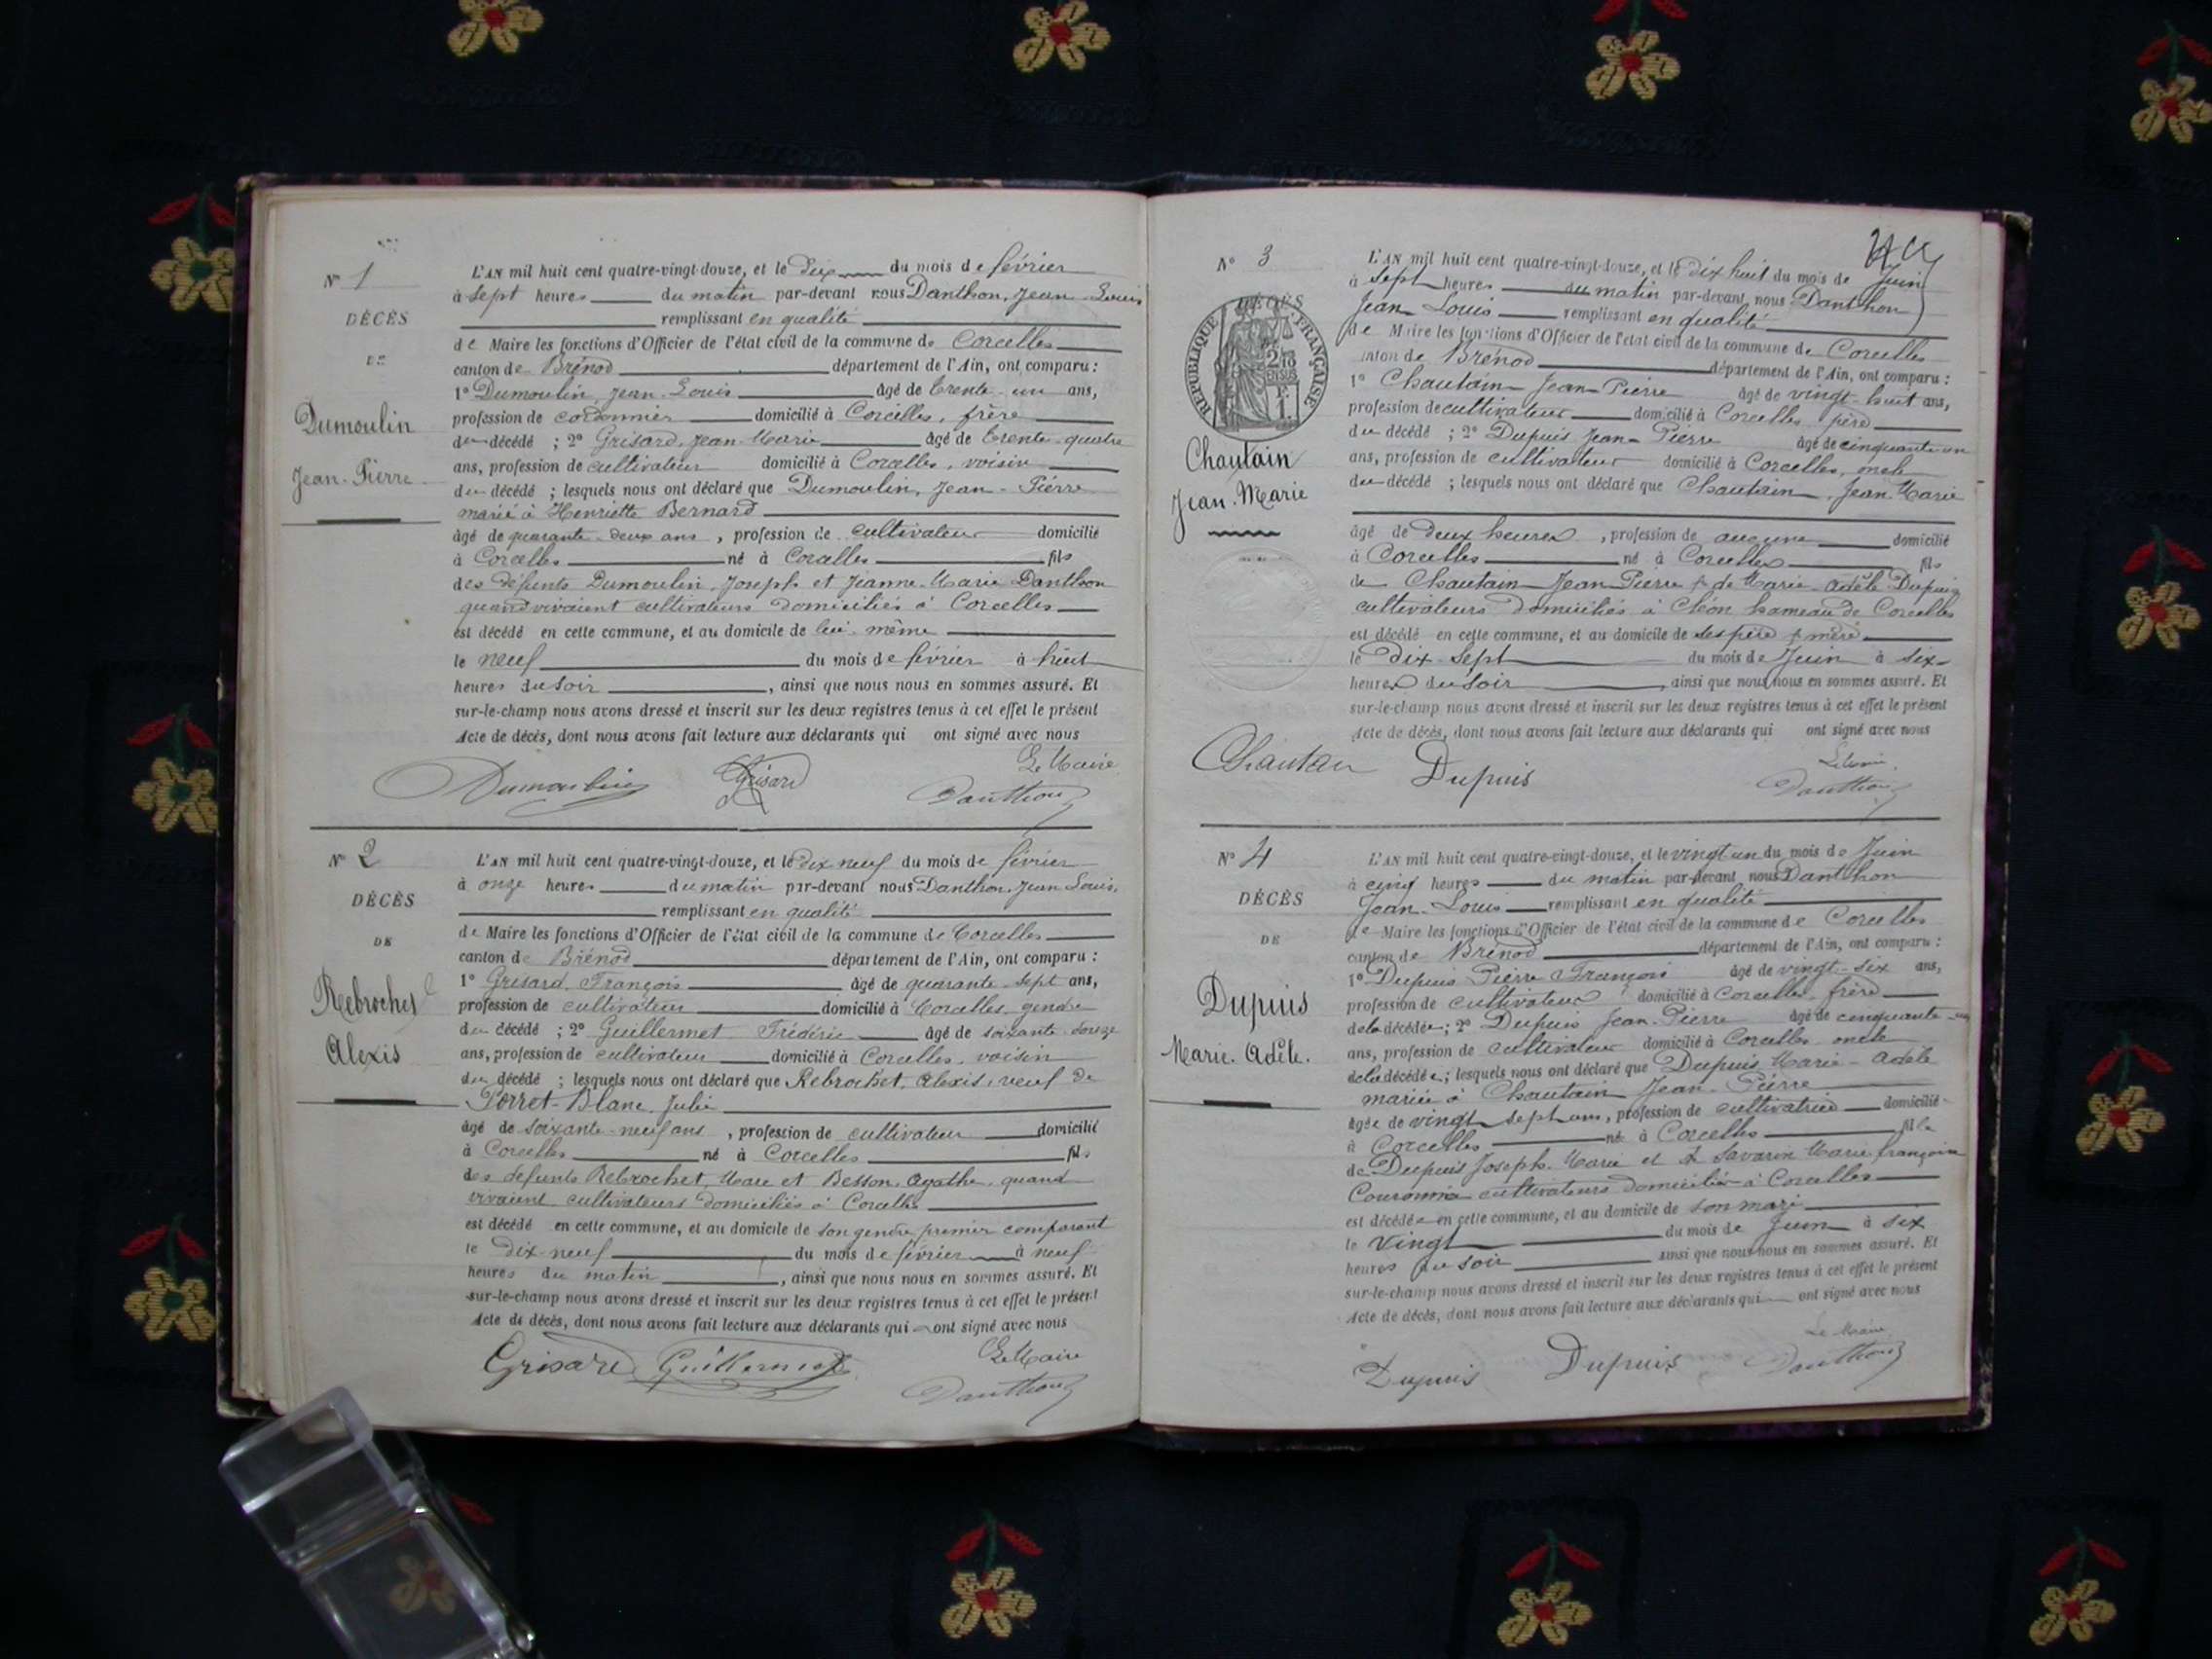 N° 1
DÉCÈS
DE
Dumoulin
Jean-Pierre
L'AN mil huit cent quatre-vingt-douze, et le dix du mois de février
à sept heures du matin par-devant nous Danthon, Jean-Louis
remplissant en qualité
de Maire les fonctions d'Officier de l'état civil de la commune de Corcelles
canton de Brénod département de l'Ain, ont comparu :
1° Dumoulin, Jean-Louis âgé de trente-un ans,
profession de cordonnier domicilié à Corcelles, frère
du décédé ; 2° Grisard, Jean-Marie âgé de trente-quatre
ans, profession de cultivateur domicilié à Corcelles, voisin
du décédé ; lesquels nous ont déclaré que Dumoulin, Jean-Pierre
marié à Henriette Bernard
âgé de quarante-deux ans, profession de cultivateur domicilié
à Corcelles né à Corcelles fils
des défunts Dumoulin, Joseph et Jeanne-Marie Danthon
quand vivaient cultivateurs domiciliés à Corcelles
est décédé en cette commune, et au domicile de lui-même
le neuf du mois de février à huit
heures du soir, ainsi que nous nous en sommes assuré. Et
sur-le-champ nous avons dressé et inscrit sur les deux registres tenus à cet effet le présent
Acte de décès, dont nous avons fait lecture aux déclarants qui ont signé avec nous
Le Maire
Dumoulin Grisard Danthon
N° 2
DÉCÈS
DE
Rebrochet
Alexis
L'AN mil huit cent quatre-vingt-douze, et le dix neuf du mois de février
à onze heures du matin par-devant nous Danthon, Jean Louis,
remplissant en qualité
de Maire les fonctions d'Officier de l'état civil de la commune de Corcelles
canton de Brénod département de l'Ain, ont comparu :
1° Grisard, François âgé de quarante-sept ans,
profession de cultivateur domicilié à Corcelles, gendre
du décédé ; 2° Guillermet Frédéric âgé de soixante-douze
ans, profession de cultivateur domicilié à Corcelles, voisin
du décédé ; lesquels nous ont déclaré que Rebrochet, Alexis, veuf de
Porret-Blanc, Julie
âgé de soixante-neuf ans, profession de cultivateur domicilié
à Corcelles né à Corcelles fils
des défunts Rebrochet, Marc et Besson, Agathe, quand
vivaient cultivateurs domiciliés à Corcelles
est décédé en cette commune, et au domicile de son gendre, premier comparant
le dix-neuf du mois de février à neuf
heures du matin, ainsi que nous nous en sommes assuré. Et
sur-le-champ nous avons dressé et inscrit sur les deux registres tenus à cet effet le présent
Acte de décès, dont nous avons fait lecture aux déclarants qui ont signé avec nous
Le Maire
Grisard Guillermet Danthon
N° 3
DÉCÈS
RÉPUBLIQUE FRANÇAISE
Chautain
Jean-Marie
L'AN mil huit cent quatre-vingt-douze, et le dix huit du mois de Juin
à sept heures du matin par-devant nous Danthon
Jean-Louis remplissant en qualité
de Maire les fonctions d'Officier de l'état civil de la commune de Corcelles
canton de Brénod département de l'Ain, ont comparu :
1° Chautain Jean-Pierre âgé de vingt-huit ans,
profession de cultivateur domicilié à Corcelles, père
du décédé ; 2° Dupuis Jean-Pierre âgé de cinquante-un
ans, profession de cultivateur domicilié à Corcelles, oncle
du décédé ; lesquels nous ont déclaré que Chautain, Jean Marie
âgé de deux heures, profession de aucune domicilié
à Corcelles né à Corcelles fils
de Chautain Jean Pierre & de Marie-Adèle Dupuis
cultivateurs domiciliés à Cléon hameau de Corcelles
est décédé en cette commune, et au domicile de ses père & mère
le dix-sept du mois de Juin à six
heures du soir, ainsi que nous nous en sommes assuré. Et
sur-le-champ nous avons dressé et inscrit sur les deux registres tenus à cet effet le présent
Acte de décès, dont nous avons fait lecture aux déclarants qui ont signé avec nous
Le Maire
Chautain Dupuis Danthon
N° 4
DÉCÈS
DE
Dupuis
Marie-Adèle.
L'AN mil huit cent quatre-vingt-douze, et le vingt un du mois de Juin
à cinq heures du matin par-devant nous Danthon
Jean-Louis remplissant en qualité
de Maire les fonctions d'Officier de l'état civil de la commune de Corcelles
canton de Brénod département de l'Ain, ont comparu :
1° Dupuis Pierre François âgé de vingt-six ans,
profession de cultivateur domicilié à Corcelles, frère
de la décédée ; 2° Dupuis Jean-Pierre âgé de cinquante-un
ans, profession de cultivateur domicilié à Corcelles oncle
de la décédée ; lesquels nous ont déclaré que Dupuis Marie-Adèle
mariée à Chautain Jean-Pierre
âgée de vingt sept ans, profession de cultivatrice domicilié
à Corcelles né à Corcelles fille
de Dupuis Joseph-Marie et Savarin Marie françoise
cultivateurs domiciliés à Corcelles
est décédée en cette commune, et au domicile de son mari
le vingt du mois de Juin à six
heures du soir ainsi que nous nous en sommes assuré. Et
sur-le-champ nous avons dressé et inscrit sur les deux registres tenus à cet effet le présent
Acte de décès, dont nous avons fait lecture aux déclarants qui ont signé avec nous
Le Maire
Dupuis Dupuis Danthon